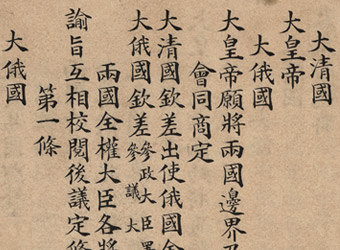 大清國
大皇帝
大俄國
大皇帝願將兩國邊界及
會同商定
大清國欽差出使俄國全
大俄國欽差參政大臣署
參議大
兩國全權大臣各將
諭旨互相校閱後議定條
第一條
大俄國